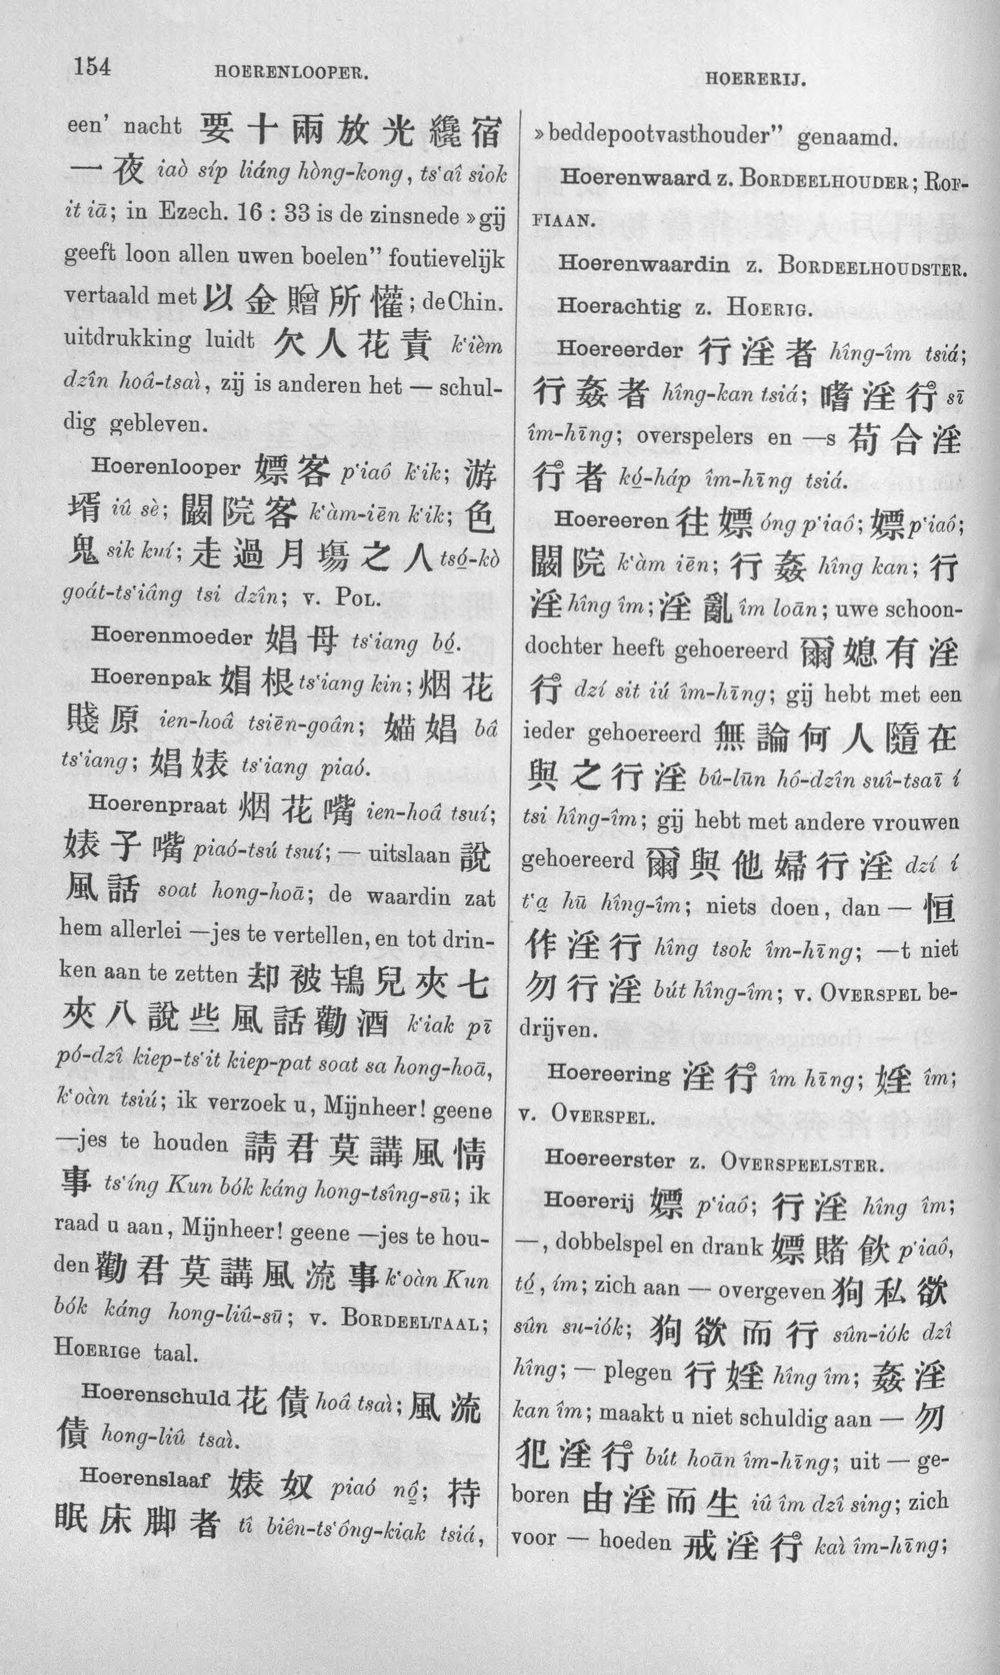 154
HOERENLOOPER.
HOERERIJ.
een' nacht 要十兩放光纔宿
一夜 iaò síp liáng hòng-kong, ts‘aî siok
it iā; in Ezech. 16 : 33 is de zinsnede »gij
geeft loon allen uwen boelen” foutievelijk
vertaald met 以金贈所懽; de Chin.
uitdrukking luidt 欠人花責 k‘ièm
dzîn hoâ-tsaì, zij is anderen het — schul-
dig gebleven.
Hoerenlooper 嫖客 p‘iaô k‘ik; 游
壻 iû sè; 闞院客 k‘àm-iēn k‘ik; 色
鬼 sik kuí; 走過月塲之人 tsó̤-kò
goát-ts‘iâng tsi dzîn; v. POL.
Hoerenmoeder 娼母 ts‘iang bó̤.
Hoerenpak 娼根 ts‘iang kin; 烟花
賤原 ien-hoâ tsiēn-goân; 媌娼 bâ
ts‘iang; 娼婊 ts‘iang piaó.
Hoerenpraat 烟花嘴 ien-hoâ tsuí;
婊子嘴 piaó-tsú tsuí; — uitslaan 說
風話 soat hong-hoā; de waardin zat
hem allerlei —jes te vertellen, en tot drin-
ken aan te zetten 却被鴇兒夾七
夾八說些風話勸酒 k‘iak pī
pó-dzî kiep-ts‘it kiep-pat soat sa hong-hoā,
k‘oàn tsiú; ik verzoek u, Mijnheer! geene
—jes te houden 請君莫講風情
事 ts‘íng Kun bók káng hong-tsîng-sū; ik
raad u aan, Mijnheer! geene —jes te hou-
den 勸君莫講風流事 k‘oàn Kun
bók káng hong-liû-sū; v. BORDEELTAAL;
HOERIGE taal.
Hoerenschuld 花債 hoâ tsaì; 風流
債 hong-liû tsaì.
Hoerenslaaf 婊奴 piaó nô̤; 持
眠床脚者 tî biên-ts‘ông-kiak tsiá,
»beddepootvasthouder” genaamd.
Hoerenwaard z. BORDEELHOUDER; ROF-
FIAAN.
Hoerenwaardin z. BORDEELHOUDSTER.
Hoerachtig z. HOERIG.
Hoereerder 行淫者 hîng-îm tsiá;
行姦者 hîng-kan tsiá; 嗜淫行 sī
îm-hīng; overspelers en —s 苟合淫
行者 kó̤-háp îm-hīng tsiá.
Hoereeren 往嫖 óng p‘iaô; 嫖 p‘iaô;
闞院 k‘àm iēn; 行姦 hîng kan; 行
淫 hîng îm; 淫亂 îm loān; uwe schoon-
dochter heeft gehoereerd 爾媳有淫
行 dzí sit iú îm-hīng; gij hebt met een
ieder gehoereerd 無論何人隨在
與之行淫 bû-lūn hô-dzîn suî-tsaī í
tsi hîng-îm; gij hebt met andere vrouwen
gehoereerd 爾與他婦行淫 dzí í
t‘a̤ hū hîng-îm; niets doen, dan — 恒
作淫行 hîng tsok îm-hīng; —t niet
勿行淫 bút hîng-îm; v. OVERSPEL be-
drijven.
Hoereering 淫行 îm hīng; 婬 îm;
v. OVERSPEL.
Hoereerster z. OVERSPEELSTER.
Hoererij 嫖 p‘iaô; 行淫 hîng îm;
—, dobbelspel en drank 嫖賭飲 p‘iaô,
tó̤, ím; zich aan — overgeven 狥私欲
sûn su-iók; 狥欲而行 sûn-iók dzî
hîng; — plegen 行婬 hîng îm; 姦淫
kan îm; maakt u niet schuldig aan — 勿
犯淫行 bút hoān îm-hīng; uit — ge-
boren 由淫而生 iû îm dzî sing; zich
voor — hoeden 戒淫行 kaì îm-hīng;